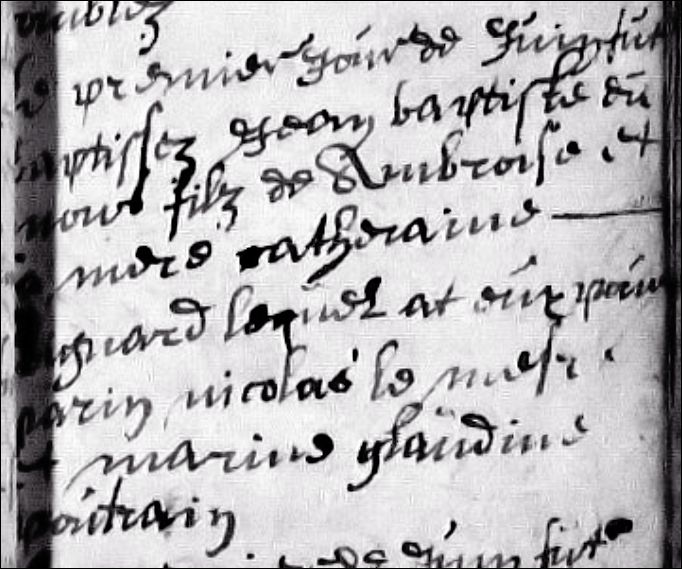 premier jour de Juin fut
baptissez Jean baptiste du
filz de Ambroise et
mere catheraine
lequel at eu pour
parin nicolas le
et marine glaudine
poutrain
de Juin fut